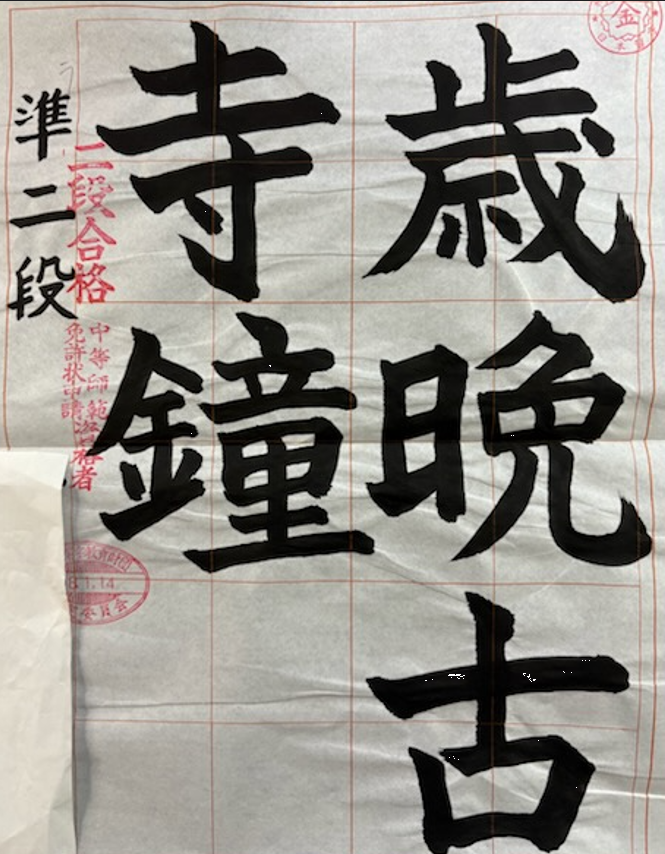 歳晩古
寺鐘
準二段
二段合格
中等師範資格者
免許状申請
金
8.1.14